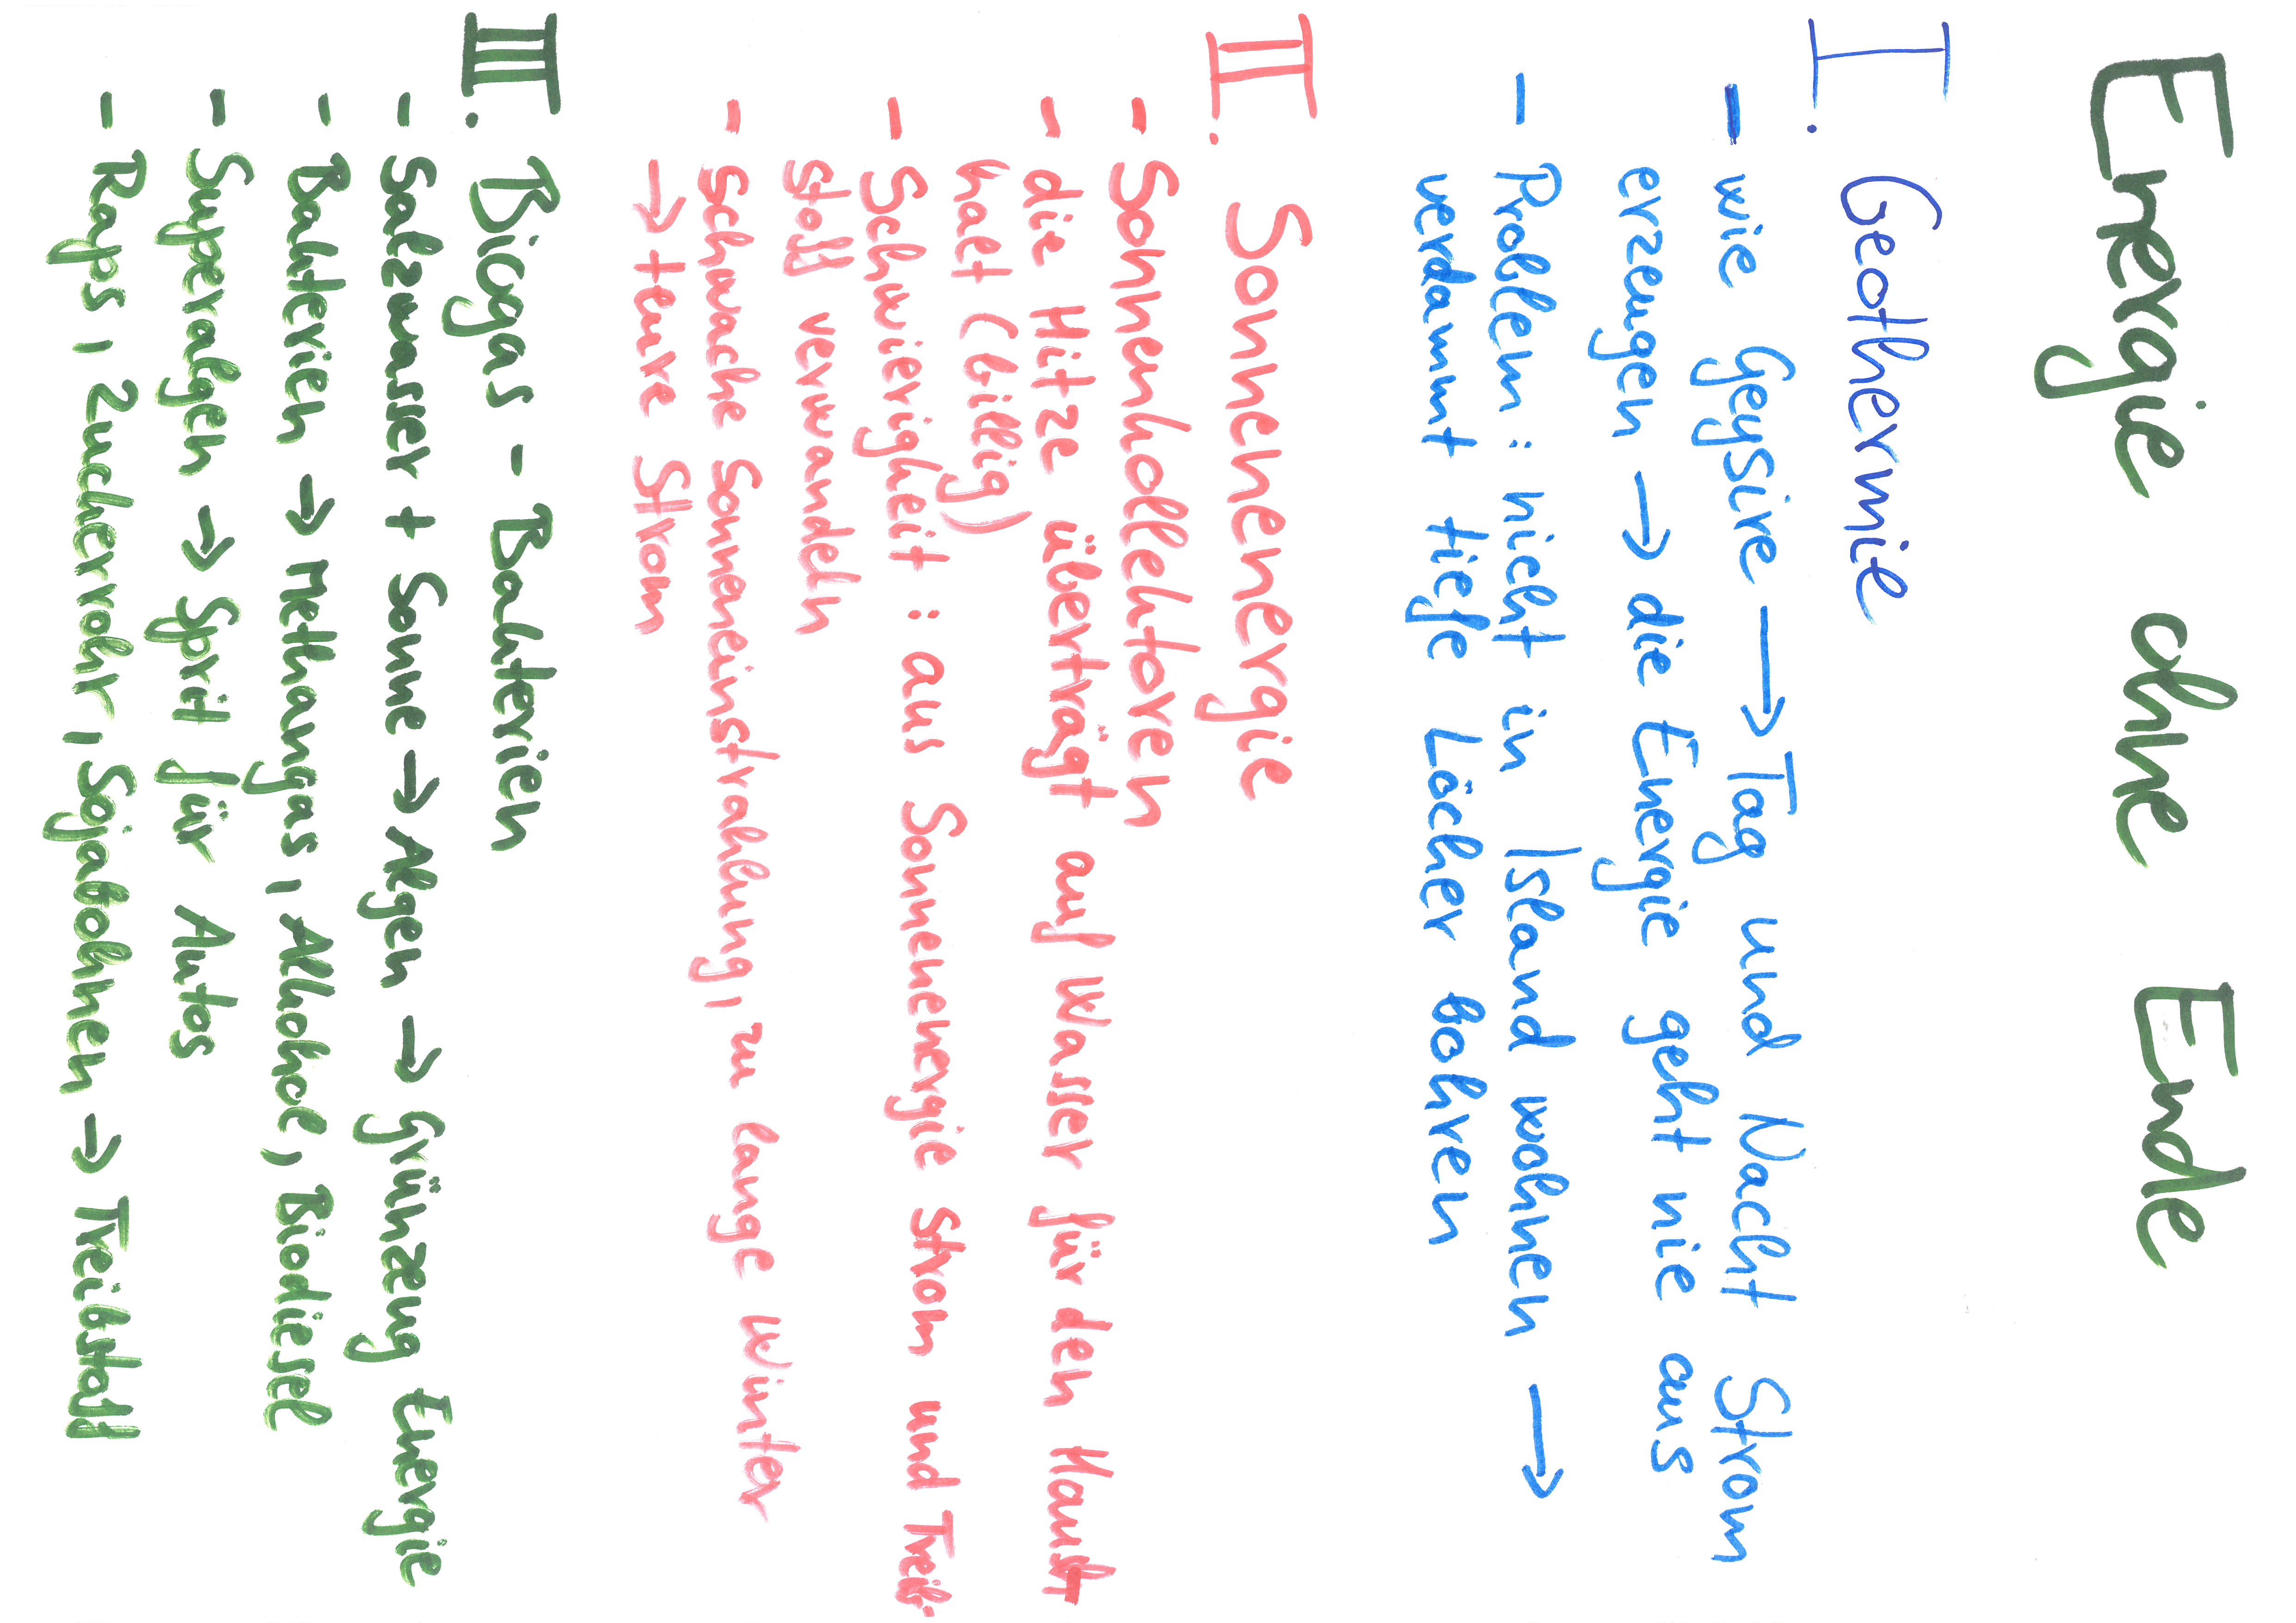 Energie ohne Ende
I. Geothermie
- wie Geysire → Tag und Nacht Strom
erzeugen → die Energie geht nie aus
- Problem: nicht in Island wohnen →
verdammt tiefe Löcher bohren
II. Sonnenenergie
- Sonnenkollektoren
- die Hitze übertragt auf Wasser für den Haus
halt (billig)
- Schwierigkeit: aus Sonnenenergie Strom und Treib-
stoff verwandeln
- Schwache Sonneneinstrahlung, zu lange Winter
→ teure Strom
III. Biogas - Bakterien
- Salzwasser + Sonne → Algen → Grünzeug Energie
- Bakterien → Methangas, Alkohol, Biodiesel
- Superalgen → Sprit für Autos
- Raps, Zuckerrohr, Sojabohnen → Treibstoff